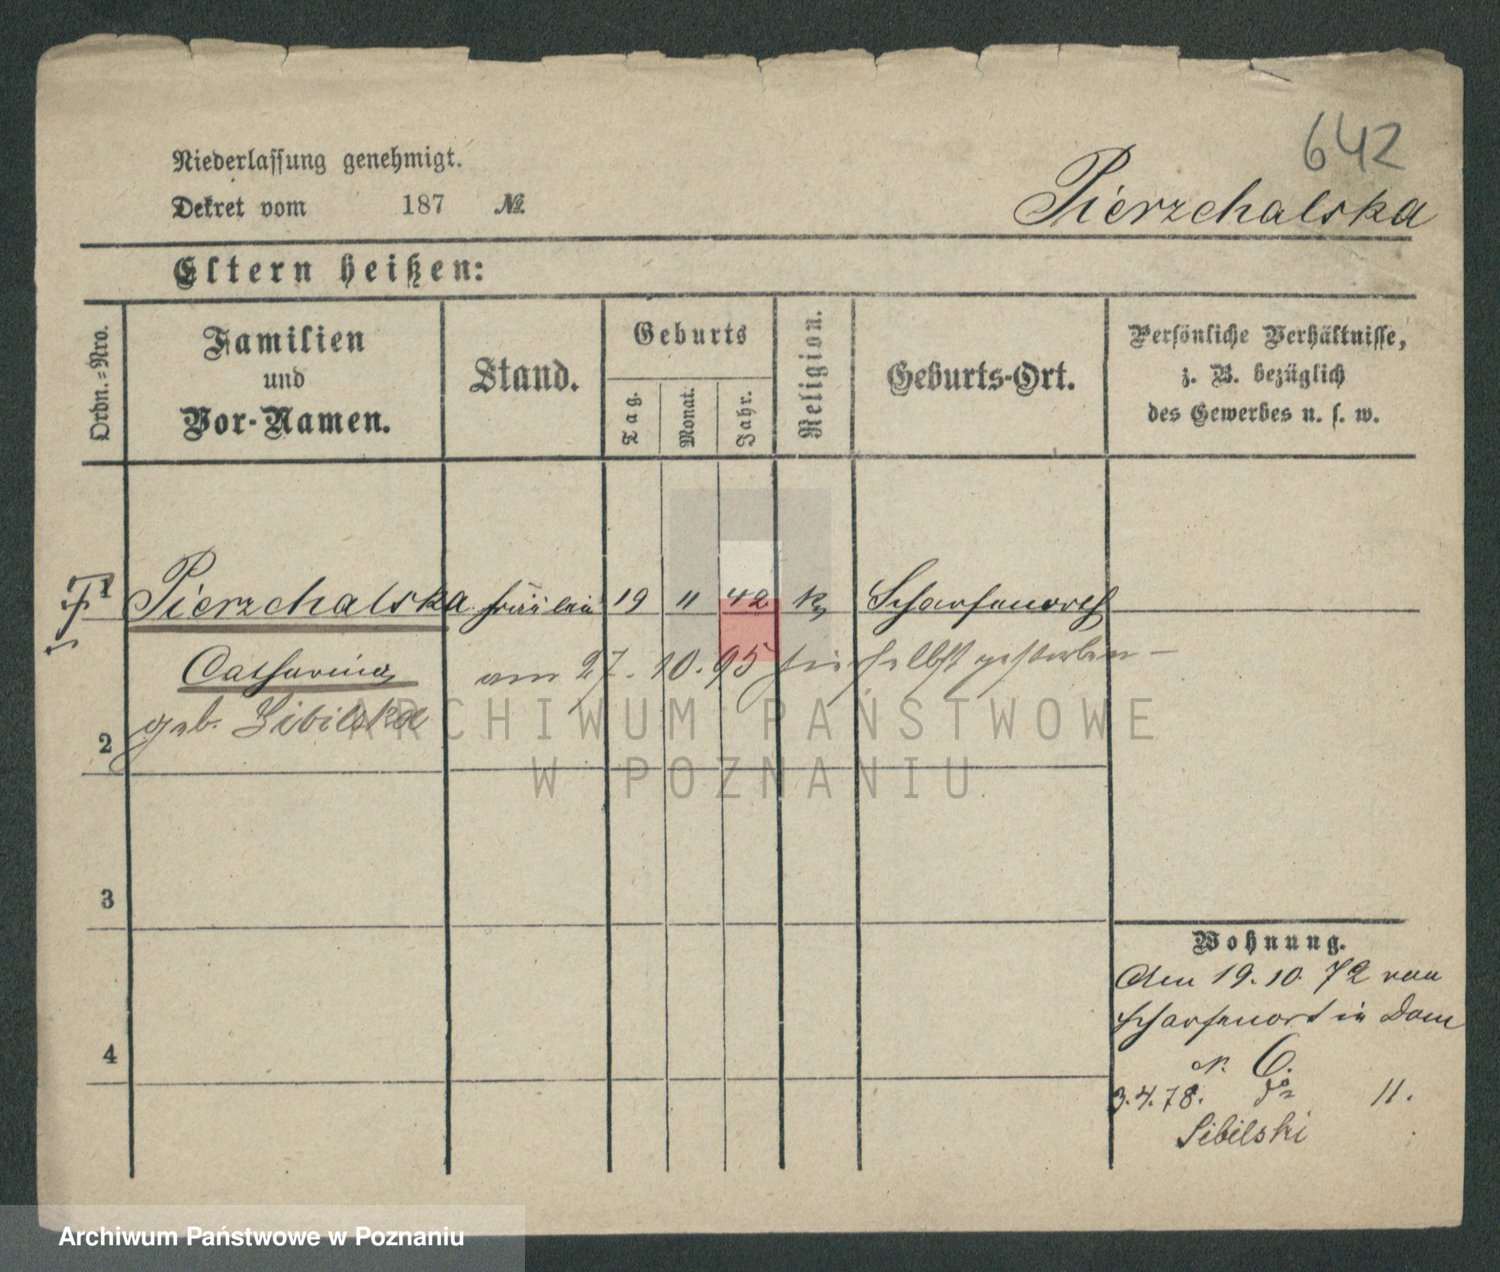 642
Niederlassung genehmigt.
Dekret vom 187 №.
Pierzchalska
Eltern heißen:
Ordn.-Nro.
Familien
und
Vor-Namen.
Stand.
Geburts
Tag.
Monat.
Jahr.
Religion.
Geburts-Ort.
Persönliche Verhältnisse,
z. B. bezüglich
des Gewerbes u. s. w.
1 Pierzchalska Fräulein 19 11 42 k Scharfenort
Catharina am 27. 10. 95 hierselbst gestorben –
geb. Sibilska
2
3
4
Wohnung.
Am 19. 10. 72 von
Scharfenort in Dom
N. 6.
3. 4. 78. do 11.
Sibilski
ARCHIWUM PAŃSTWOWE
W POZNANIU
Archiwum Państwowe w Poznaniu